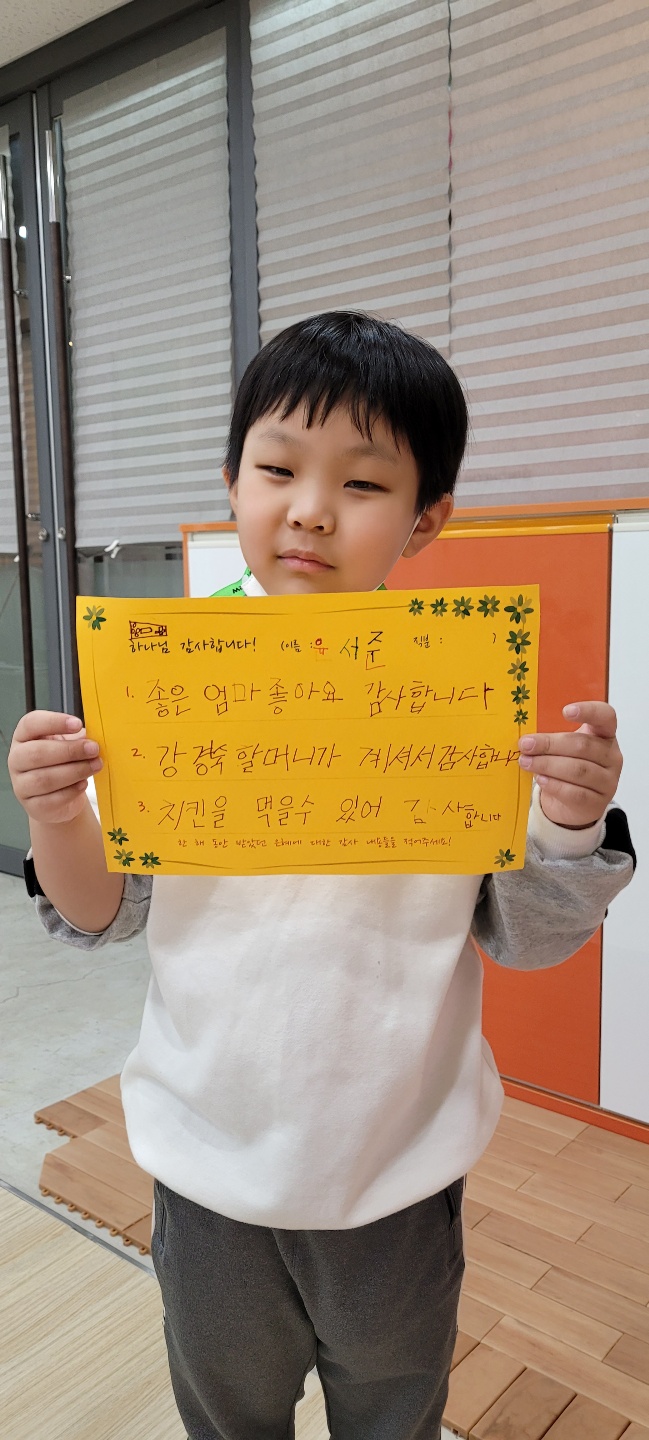 하나님 감사합니다! (이름 : 유 서준 직분 : )
1. 좋은 엄마 좋아요 감사합니다
2. 강경숙 할머니가 계셔서 감사합니다
3. 치킨을 먹을수 있어 감사합니다
한 해 동안 받았던 은혜에 대한 감사 내용들을 적어주세요!